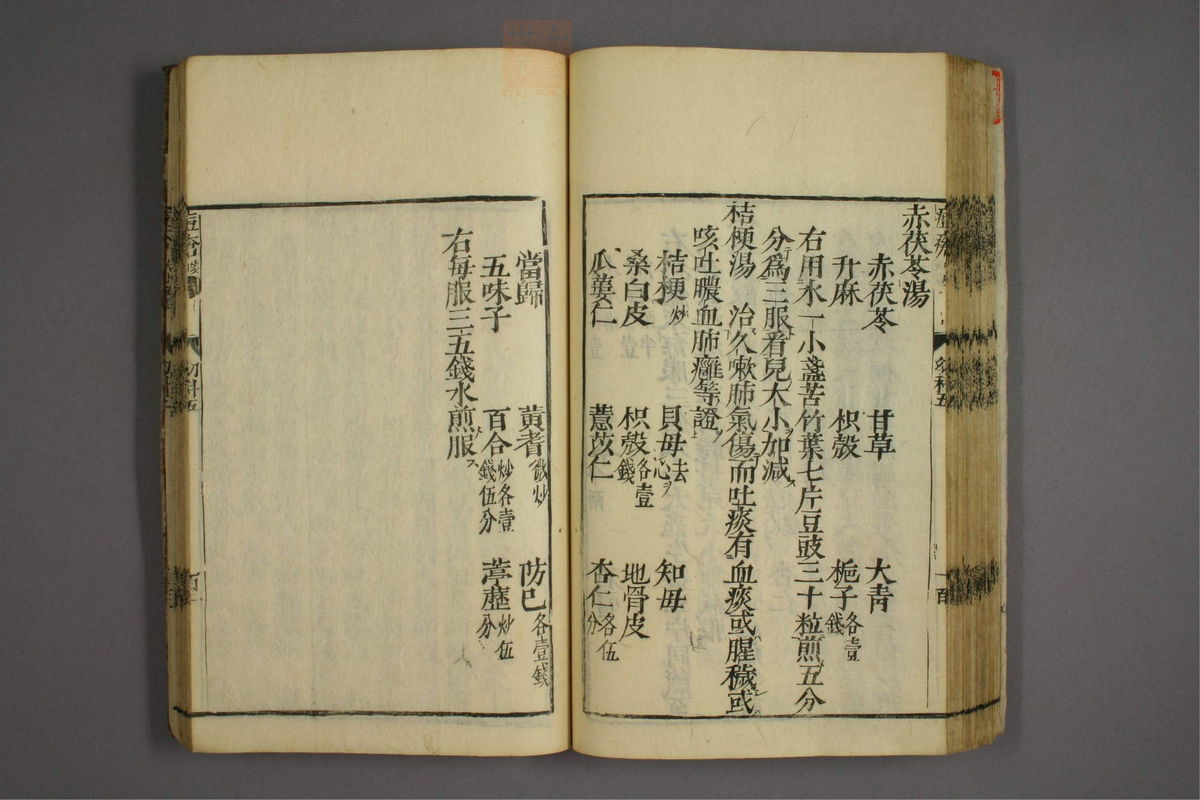 赤茯苓湯
赤茯苓 甘草 大青
升麻 枳殼 梔子各壹錢
右用水一小盞苦竹葉七片豆豉三十粒煎五分
分爲三服看兒大小加減
桔梗湯 治久嗽肺氣傷而吐痰有血痰或腥穢或
咳吐膿血肺癰等證
桔梗炒 貝母去心 知母
桑白皮 枳殼各壹錢 地骨皮
瓜蔞仁 薏苡仁 杏仁各伍分
當歸 黃耆微炒 防己各壹錢
五味子 百合炒各壹錢伍分 葶藶炒伍分
右每服三五錢水煎服
幼科五